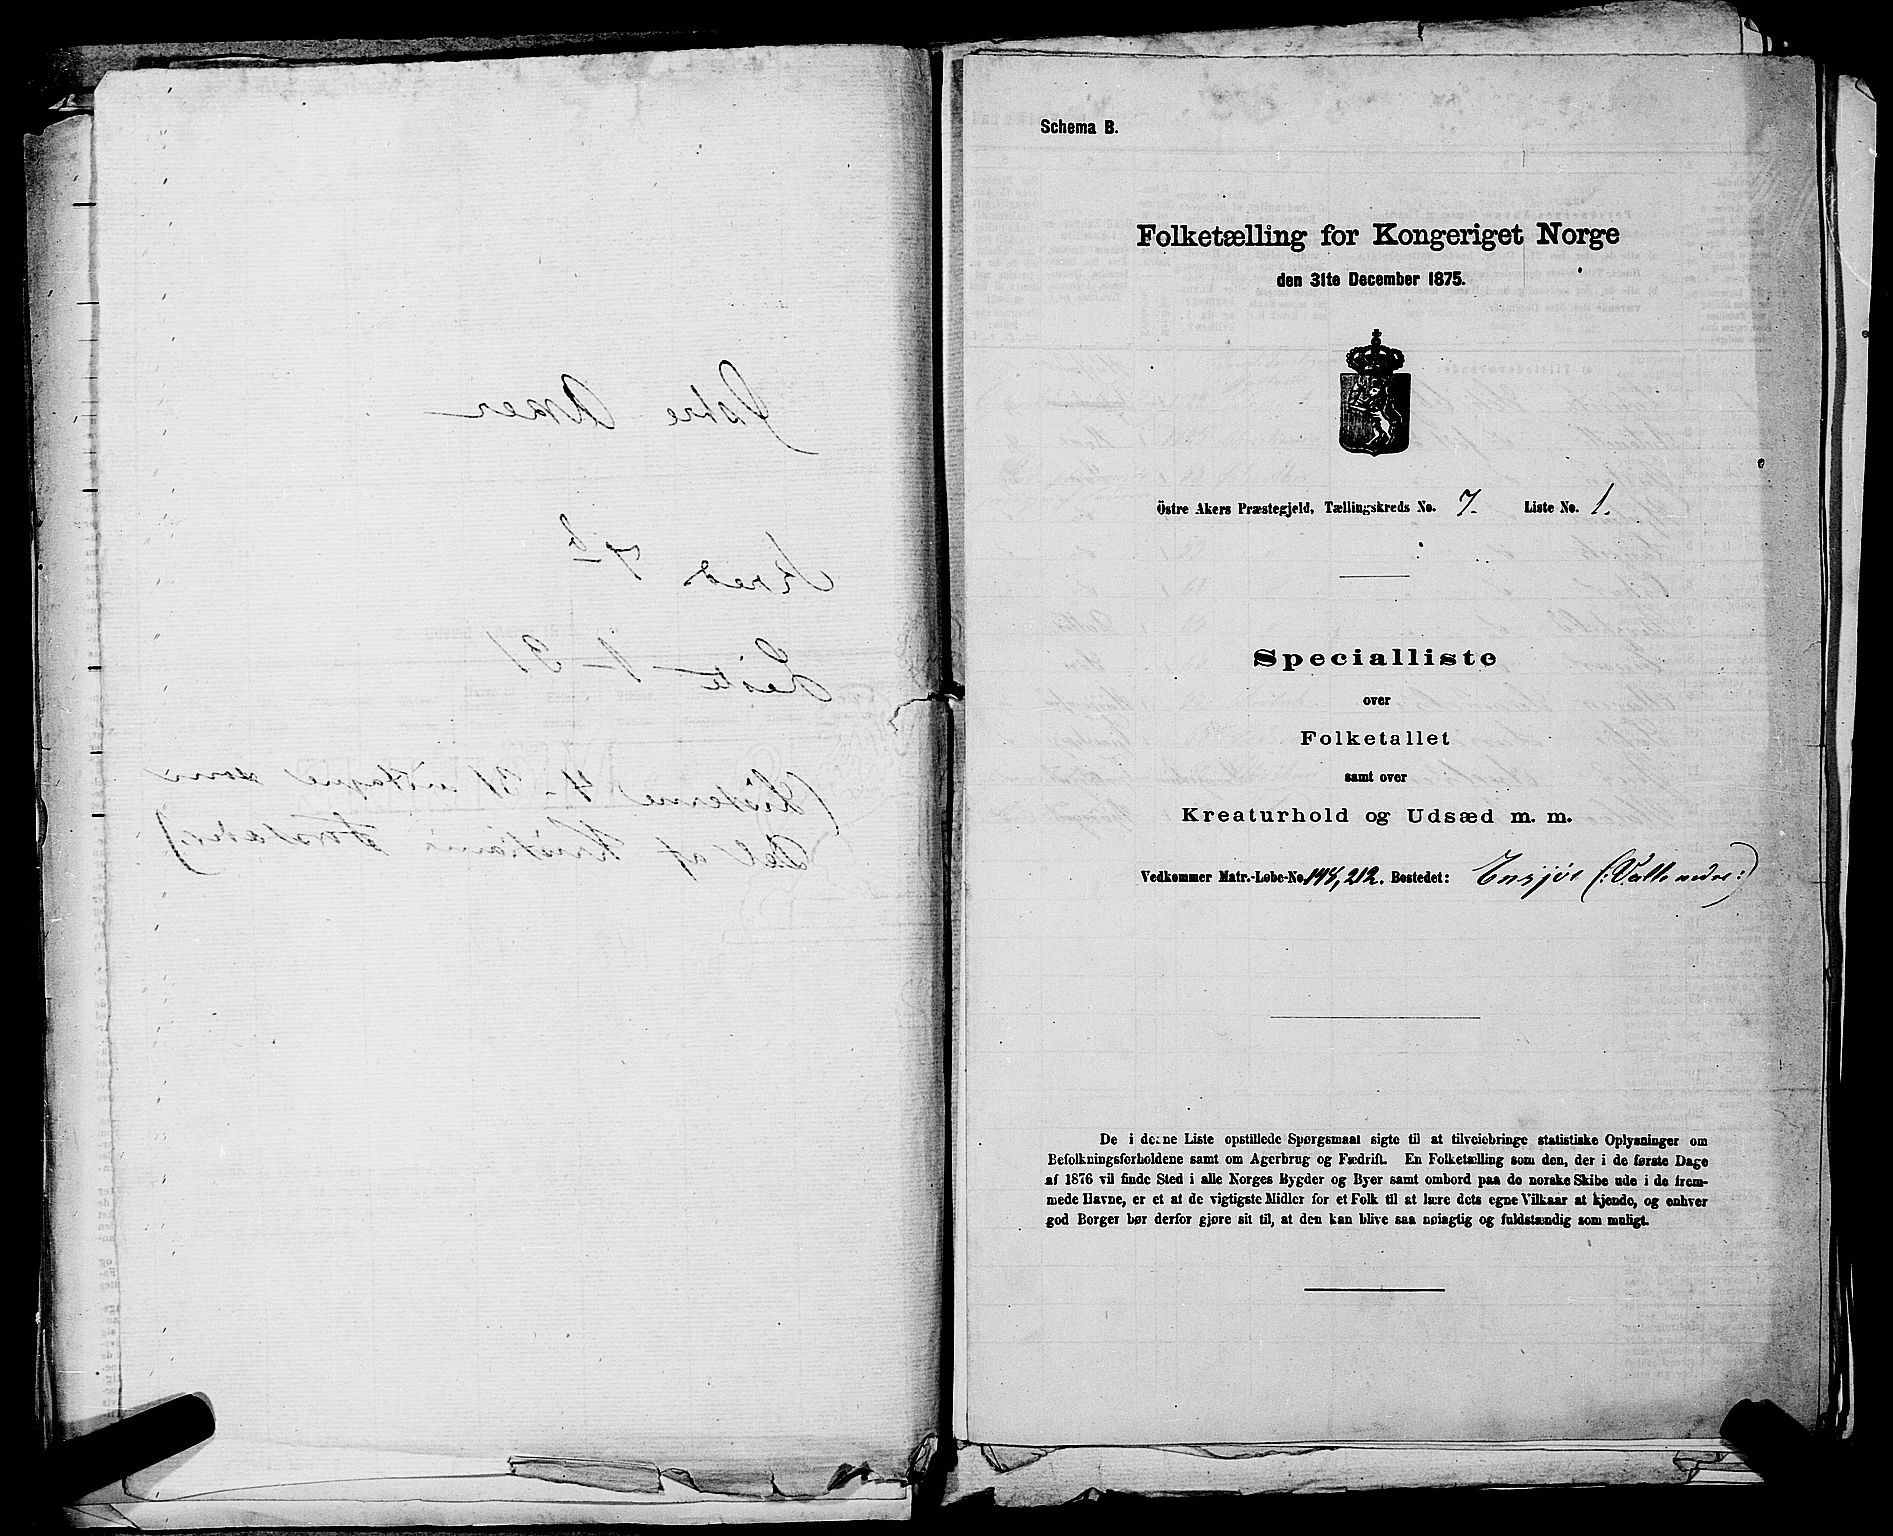 Østre Aker
Kred 7b
Liste 1-31
(Listerne 4-31 indtagne som
Del af Kristiania Forstæder)
Schema B.
Folketælling for Kongeriget Norge
den 31te December 1875.
Östre Akers Præstegjeld, Tællingskreds No. 7. Liste No. 1.
Specialliste
over
Folketallet
samt over
Kreaturhold og Udsæd m. m.
Vedkommer Matr.-Løbe-No. 148, 212. Bostedet: Ensjøe (: Valle nedre :)
De i denne Liste opstillede Spørgsmaal sigte til at tilveiebringe statistiske Oplysninger om
Befolkningsforholdene samt om Agerbrug og Fædrift. En Folketælling som den, der i de første Dage
af 1876 vil finde Sted i alle Norges Bygder og Byer samt ombord paa de norske Skibe ude i de frem-
mede Havne, er et at de vigtigste Midler for et Folk til at lære dets egne Vilkaar at kjende, og enhver
god Borger bør derfor gjøre sit til, at den kan blive saa nøiagtig og fuldstændig som muligt.